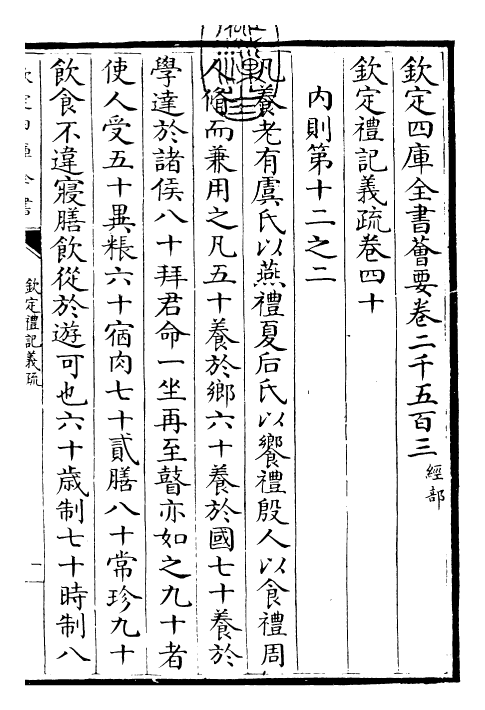 欽定四庫全書薈要卷二千五百三 經部
欽定禮記義疏卷四十
內則第十二之二
凡養老有虞氏以燕禮夏后氏以饗禮殷人以食禮周
人脩而兼用之凡五十養於鄉六十養於國七十養於
學達於諸侯八十拜君命一坐再至瞽亦如之九十者
使人受五十異粻六十宿肉七十貳膳八十常珍九十
飲食不違寢膳飲從於遊可也六十歲制七十時制八
欽定禮記義疏
一